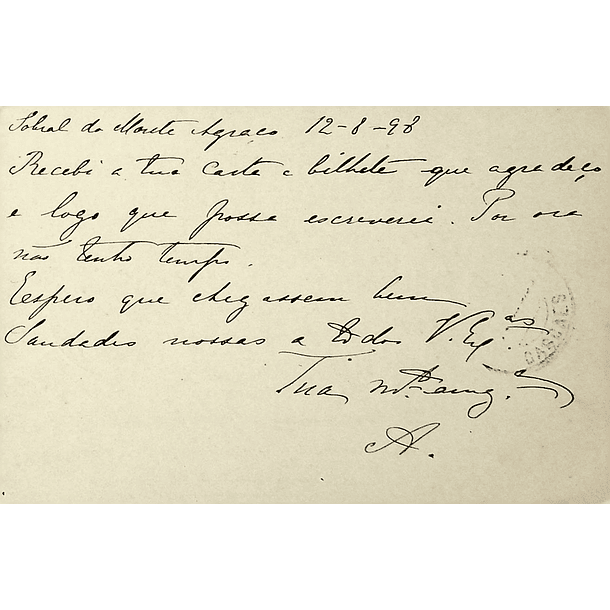 Sobral do Monte Agraço 12-8-98
Recebi a tua carta e bilhete que agradeço
e logo que possa escreverei. Por ora
não tenho tempo.
Espero que chegassem bem
Saudades nossas a todos V. Ex.as
Tua mt.o amg.a
A.
CASCAES